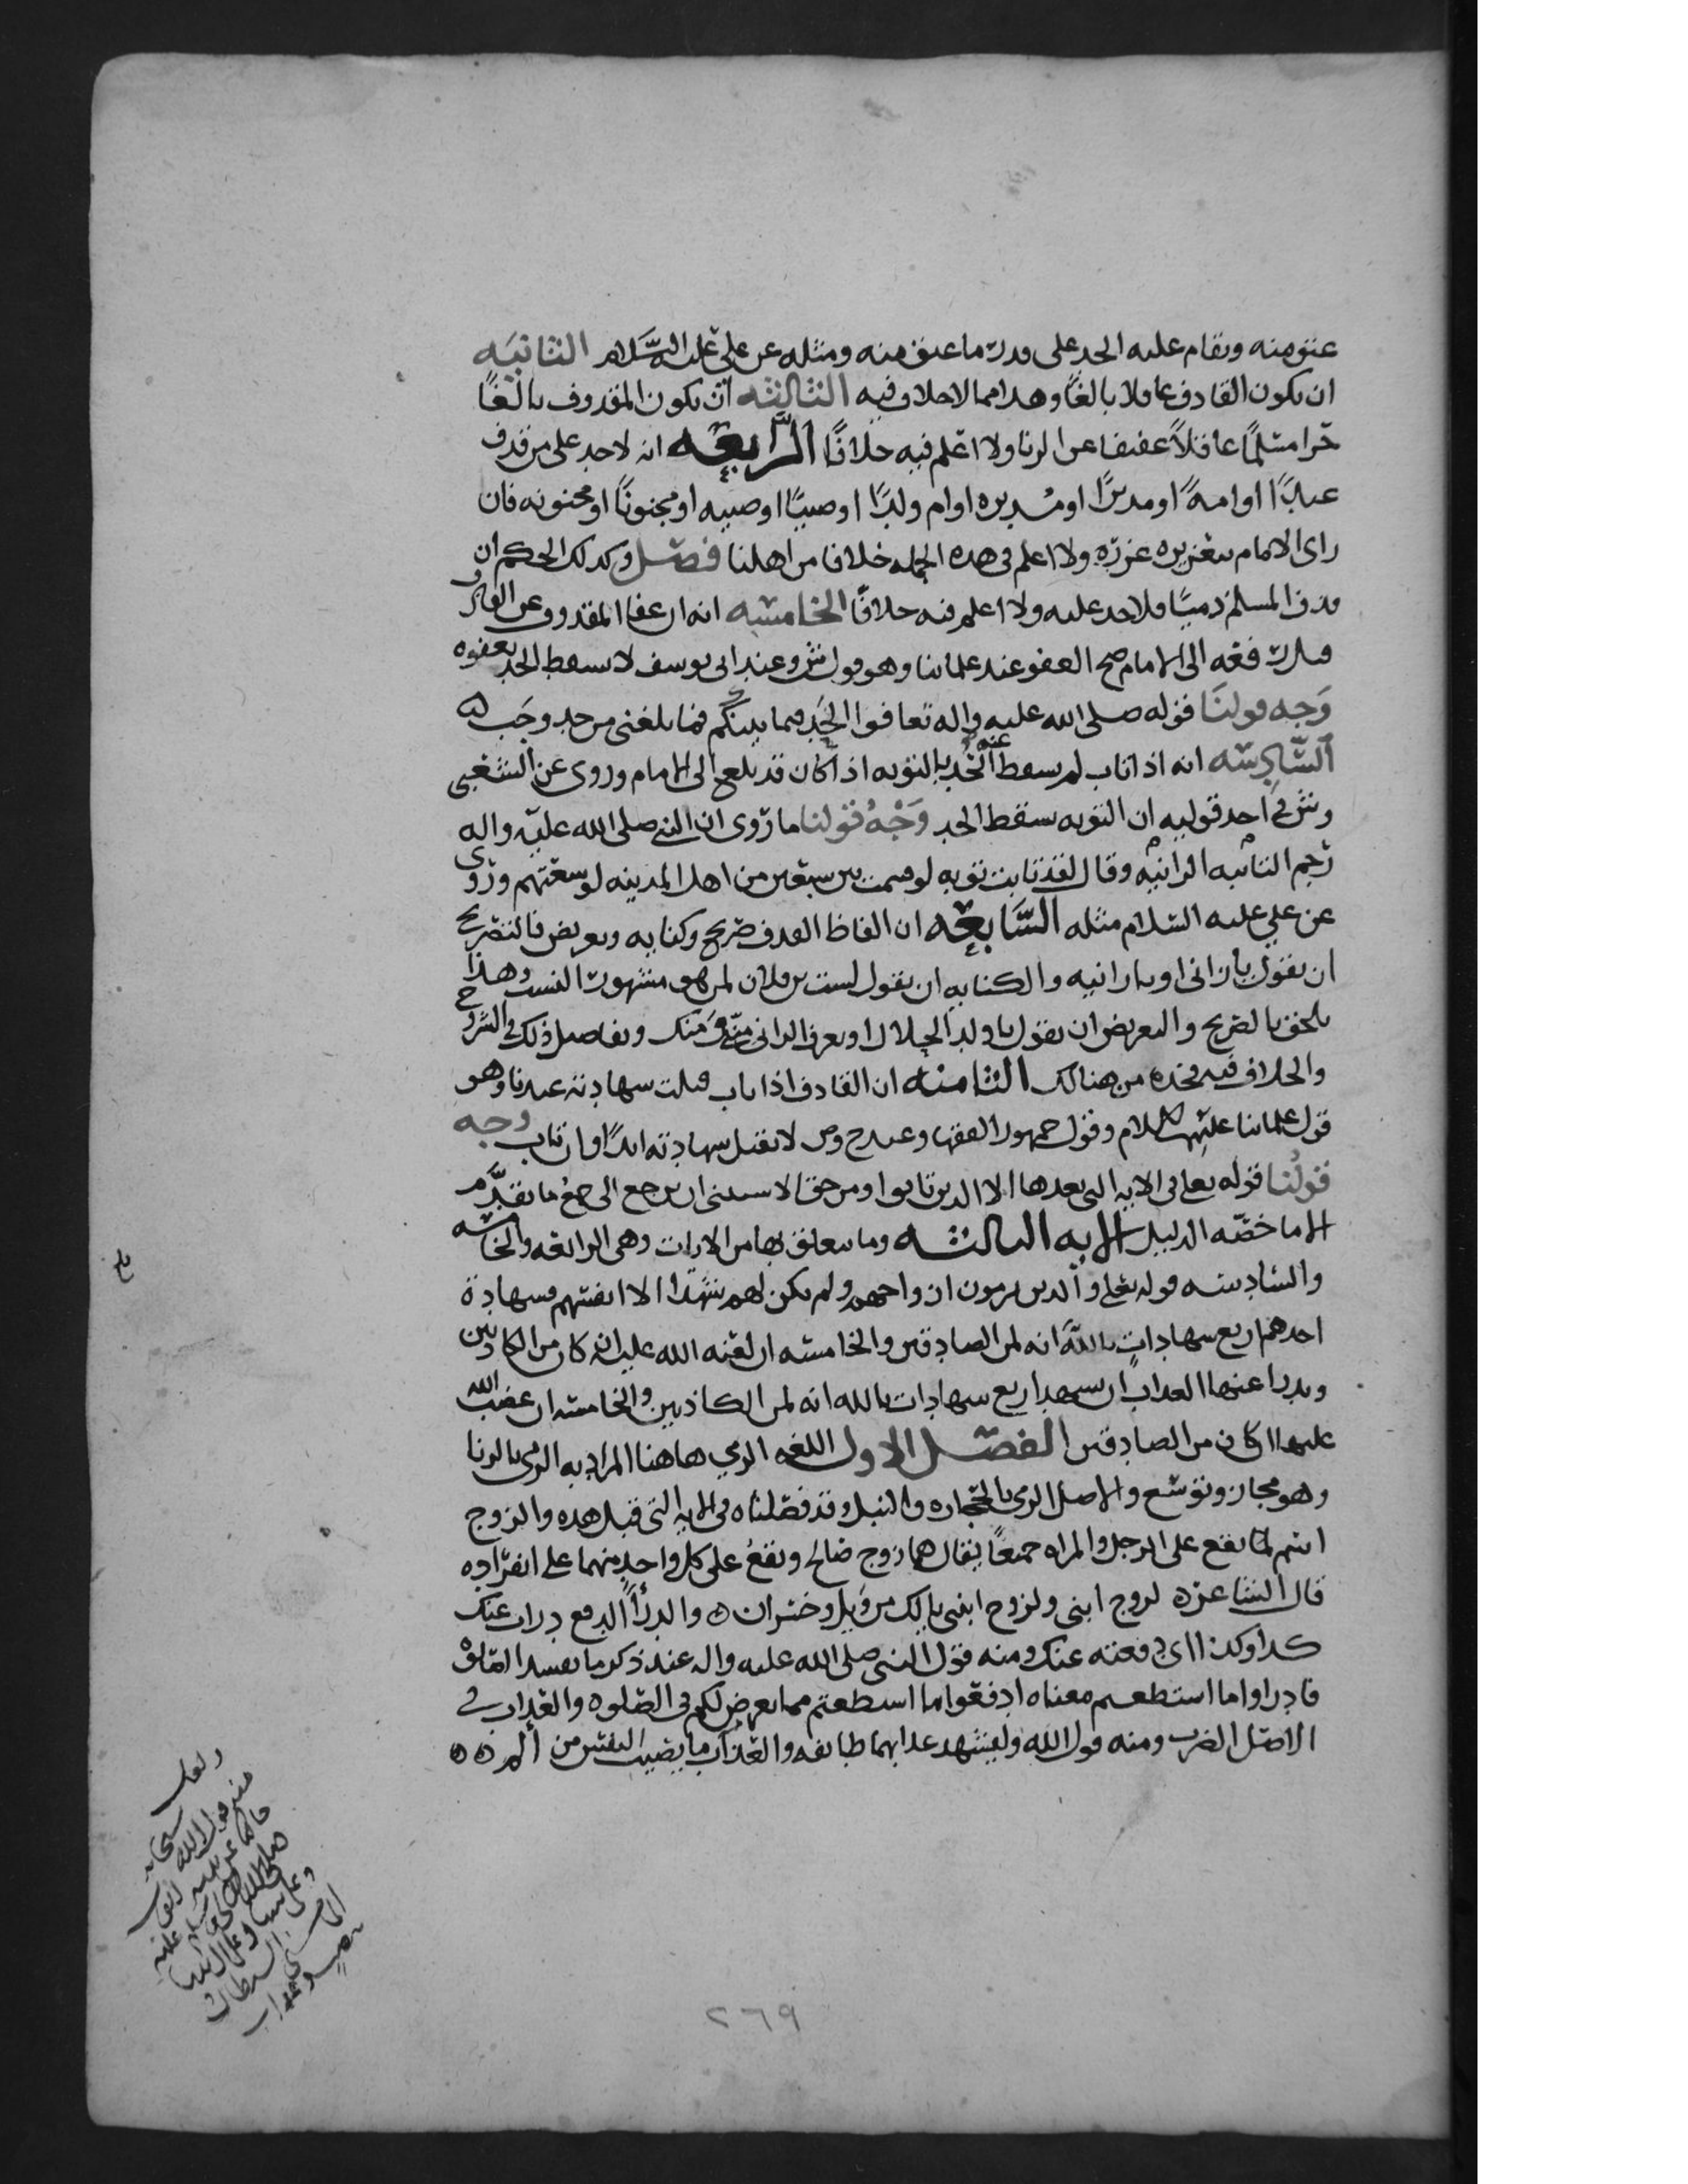 عتق منه ويقام عليه الحد على قدر ما عتق منه ومثله عن علي عليه السلام الثانيه
ان يكون القادف عاقلا بالغًا وهدا مما لا خلاف فيه الثالثه ان يكون المقدوف بالغًا
حرا مسلمًا عاقلاً عفيفا عن الزنا ولا اعلم فيه خلافًا الرابعه انه لا حد على من قدف
عبدًا او امهً او مدبرًا او مدبره او ام ولدٍ او صبيًا او صبيه او مجنونًا او مجنونه فان
راى الامام تعزيره عزره ولا اعلم في هده الجمله خلافا من اهلنا فصل وكدلك الحكم ان
قدف المسلم ذميًا فلا حد عليه ولا اعلم فيه خلافًا الخامسه انه ان عفا المقدوف عن القادف
قبل رفعه الى الامام صح العفو عند علمائنا وهو قول ش وعند ابي يوسف لا يسقط الحد بعفوه
وجه قولنا قوله صلى الله عليه واله تعافوا الحد فيما بينكم فما بلغني من حد وجب
السادسه انه اذا تاب لم يسقط عنه الحد بالتوبه اذا كان قد بلغ الى الامام وروى عن الشعبي
وش في احد قوليه ان التوبه تسقط الحد وجه قولنا ما روى ان النبي صلى الله عليه واله
رجم التائبه الزانيه وقال لقد تابت توبه لو قسمت بين سبعين من اهل المدينه لوسعتهم وروى
عن علي عليه السلام مثله السابعه ان الفاظ القدف صريح وكنايه وتعريض فالتصريح
ان يقول يا زاني او يا زانيه والكنايه ان يقول لست بن فلان لمن هو مشهور النسب وهذا
يلحق بالصريح والتعريض ان يقول يا ولد الحلال او يعرف الزاني مني ومنك وتفاصيل ذلك في الشروح
والخلاف فيه فخده من هنالك الثامنه ان القادف اذا تاب قبلت شهادته عندنا وهو
قول علمائنا عليهم السلام وقول جمهور الفقها وعند ح وص لا تقبل شهادته ابدًا وان تاب وجه
قولنا قوله تعلى في الايه التي بعدها الا الدين تابوا ومن حق الاستثنى ان يرجع الى جميع ما تقدم
الا ما خصه الدليل الايه الثالثه وما يتعلق بها من الايات وهى الرابعه والخامسه
والسادسه قوله تعلى والدين يرمون ازواجهم ولم يكن لهم شهدا الا انفسهم فشهادة
احدهم اربع شهاداتٍ بالله انه لمن الصادقين والخامسه ان لعنه الله عليه ان كان من الكاذبين
ويدرا عنها العداب ان تشهد اربع شهادات بالله انه لمن الكاذبين والخامسه ان غضب الله
عليها ان كان من الصادقين الفصل الاول اللغه الرمي هاهنا المراد به الرمي بالزنا
وهو مجاز وتوسع والاصل الرمي بالحجاره والنبل وقد فصلناه في الايه التي قبل هده والزوج
اسم لما يقع على الرجل والمراه جميعًا يقال هما زوج صالح ويقع على كل واحدٍ منهما على انفراده
قال الشاعر ه لزوج ابني ولزوج ابنتي يا لك من ويل وخسران ه والدرأ الدفع درات عنك
كدا وكدا اى دفعته عنك ومنه قول النبي صلى الله عليه واله عند ذكر ما يفسد الصلاة
فادراوا ما استطعتم معناه ادفعوا ما استطعتم مما يعرض لكم في الصلوه والعداب في
الاصل الضرب ومنه قول الله وليشهد عدابهما طائفه والعداب ما يصيب النفس من الم ه ه
منه قول الله سبحانه
٢٦٩